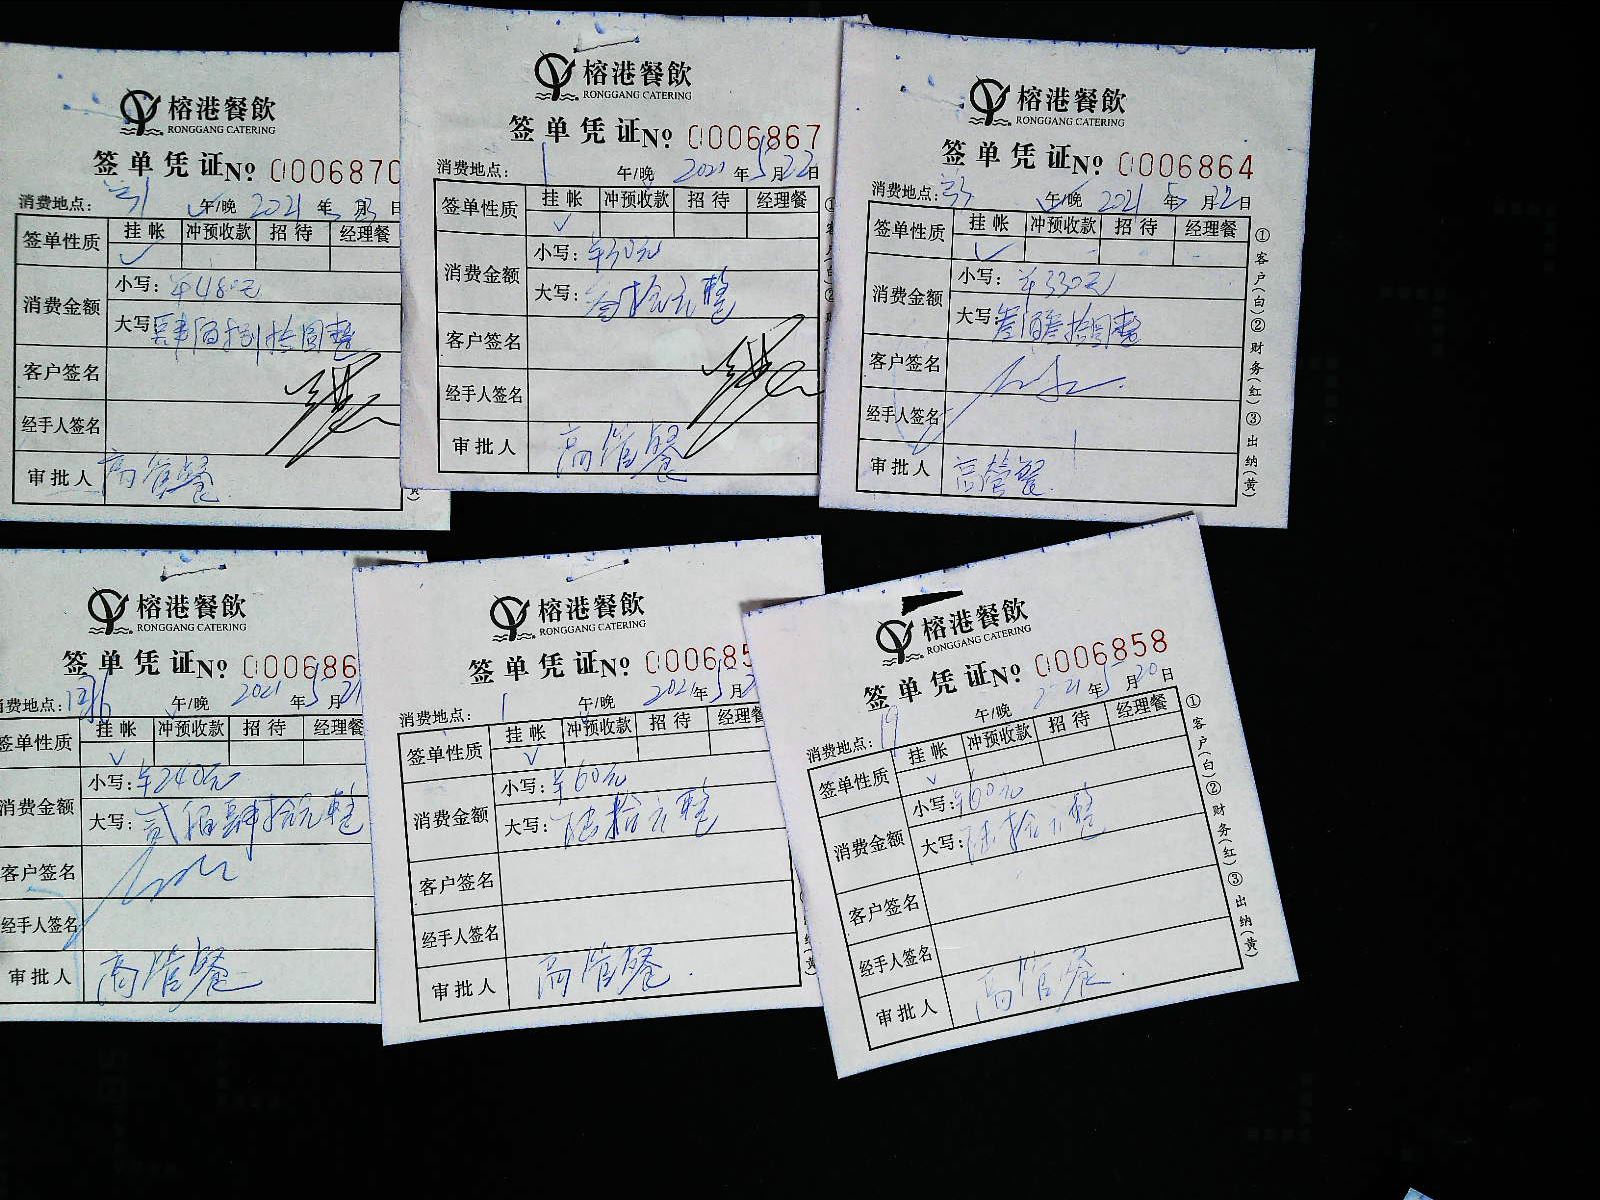 榕港餐飲
RONGGANG CATERING
签单凭证 No 0006870
消费地点: 午/晚 2021年 月 日
签单性质 挂帐 冲预收款 招待 经理餐
✓
消费金额
小写: ¥480元
大写: 肆佰捌拾圆整
客户签名
经手人签名
审批人 高管餐
榕港餐飲
RONGGANG CATERING
签单凭证 No 0006867
消费地点: 1 午/晚 2021年5月22日
签单性质 挂帐 冲预收款 招待 经理餐
✓
消费金额
小写: ¥30元
大写: 叁拾元整
客户签名
经手人签名
审批人 高管餐
榕港餐飲
RONGGANG CATERING
签单凭证 No 0006864
消费地点: 午/晚 2021年5月22日
签单性质 挂帐 冲预收款 招待 经理餐
✓
消费金额
小写: ¥330元
大写: 叁佰叁拾圆整
客户签名
经手人签名
审批人 高管餐
①客户(白)②财务(红)③出纳(黄)
榕港餐飲
RONGGANG CATERING
签单凭证 No 000686
消费地点: 午/晚 2021年5月21
签单性质 挂帐 冲预收款 招待 经理餐
✓
消费金额
小写: ¥240元
大写: 贰佰肆拾元整
客户签名
经手人签名
审批人 高管餐
榕港餐飲
RONGGANG CATERING
签单凭证 No 000685
消费地点: 1 午/晚 2021年5月2
签单性质 挂帐 冲预收款 招待 经理餐
✓
消费金额
小写: ¥60元
大写: 陆拾元整
客户签名
经手人签名
审批人 高管餐
榕港餐飲
RONGGANG CATERING
签单凭证 No 0006858
消费地点: 19 午/晚 2021年5月20日
签单性质 挂帐 冲预收款 招待 经理餐
✓
消费金额
小写: ¥60元
大写: 陆拾元整
客户签名
经手人签名
审批人 高管餐
①客户(白)②财务(红)③出纳(黄)